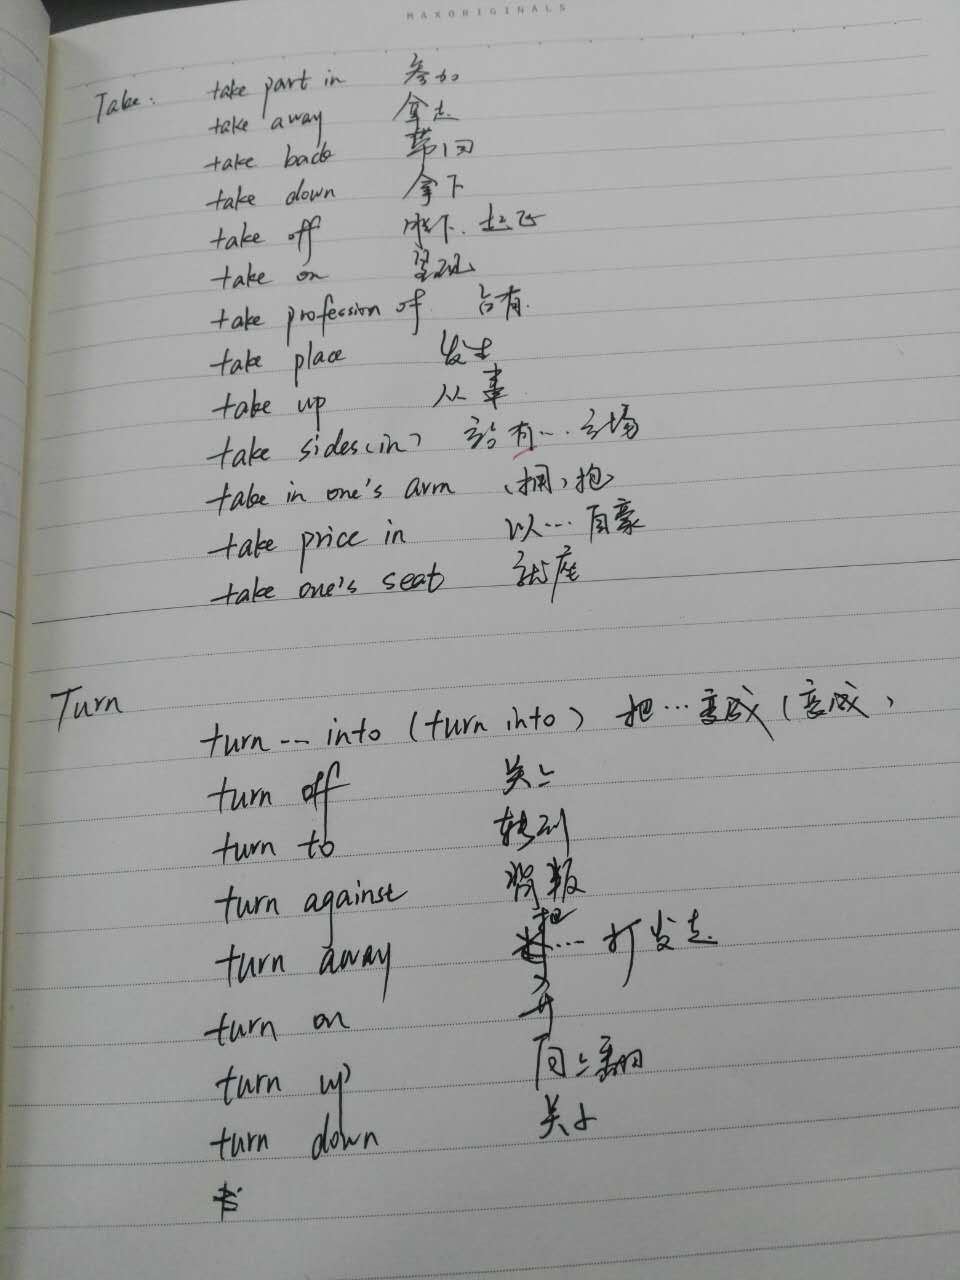 MAXORIGINALS
Take: take part in 参加
take away 拿走
take back 带回
take down 拿下
take off 脱下. 起飞
take on 呈现
take profession of 占有.
take place 发生
take up 从事
take sides (in) 站有… 立场
take in one's arm (拥)抱
take price in 以… 自豪
take one's seat 就座
Turn
turn -- into (turn into) 把…变成 (变成)
turn off 关上
turn to 转到
turn against 背叛
turn away 把… 打发走
turn on 开
turn up 向上翻
turn down 关小